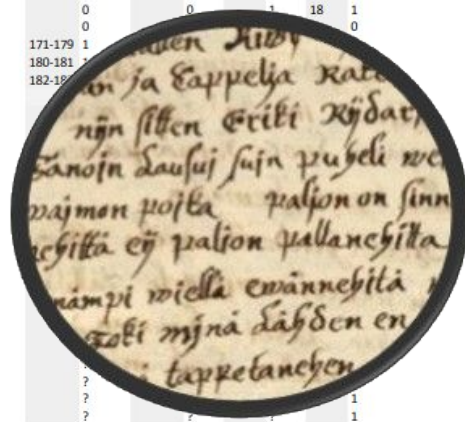 0 0 1 18 1
0 0
171-179 1
180-181 1
an ja Cappelja Rat
nijn sitten Eriki Rijdar
Sanoin Lausui suin puheli we
waimon poika paljon on sinn
nehiltä eij paljon pallanehilta
nämpi wiellä ewännehitä
Toki mjnä Lähden en
tappetanehen
?
? 1
? ? ? 1